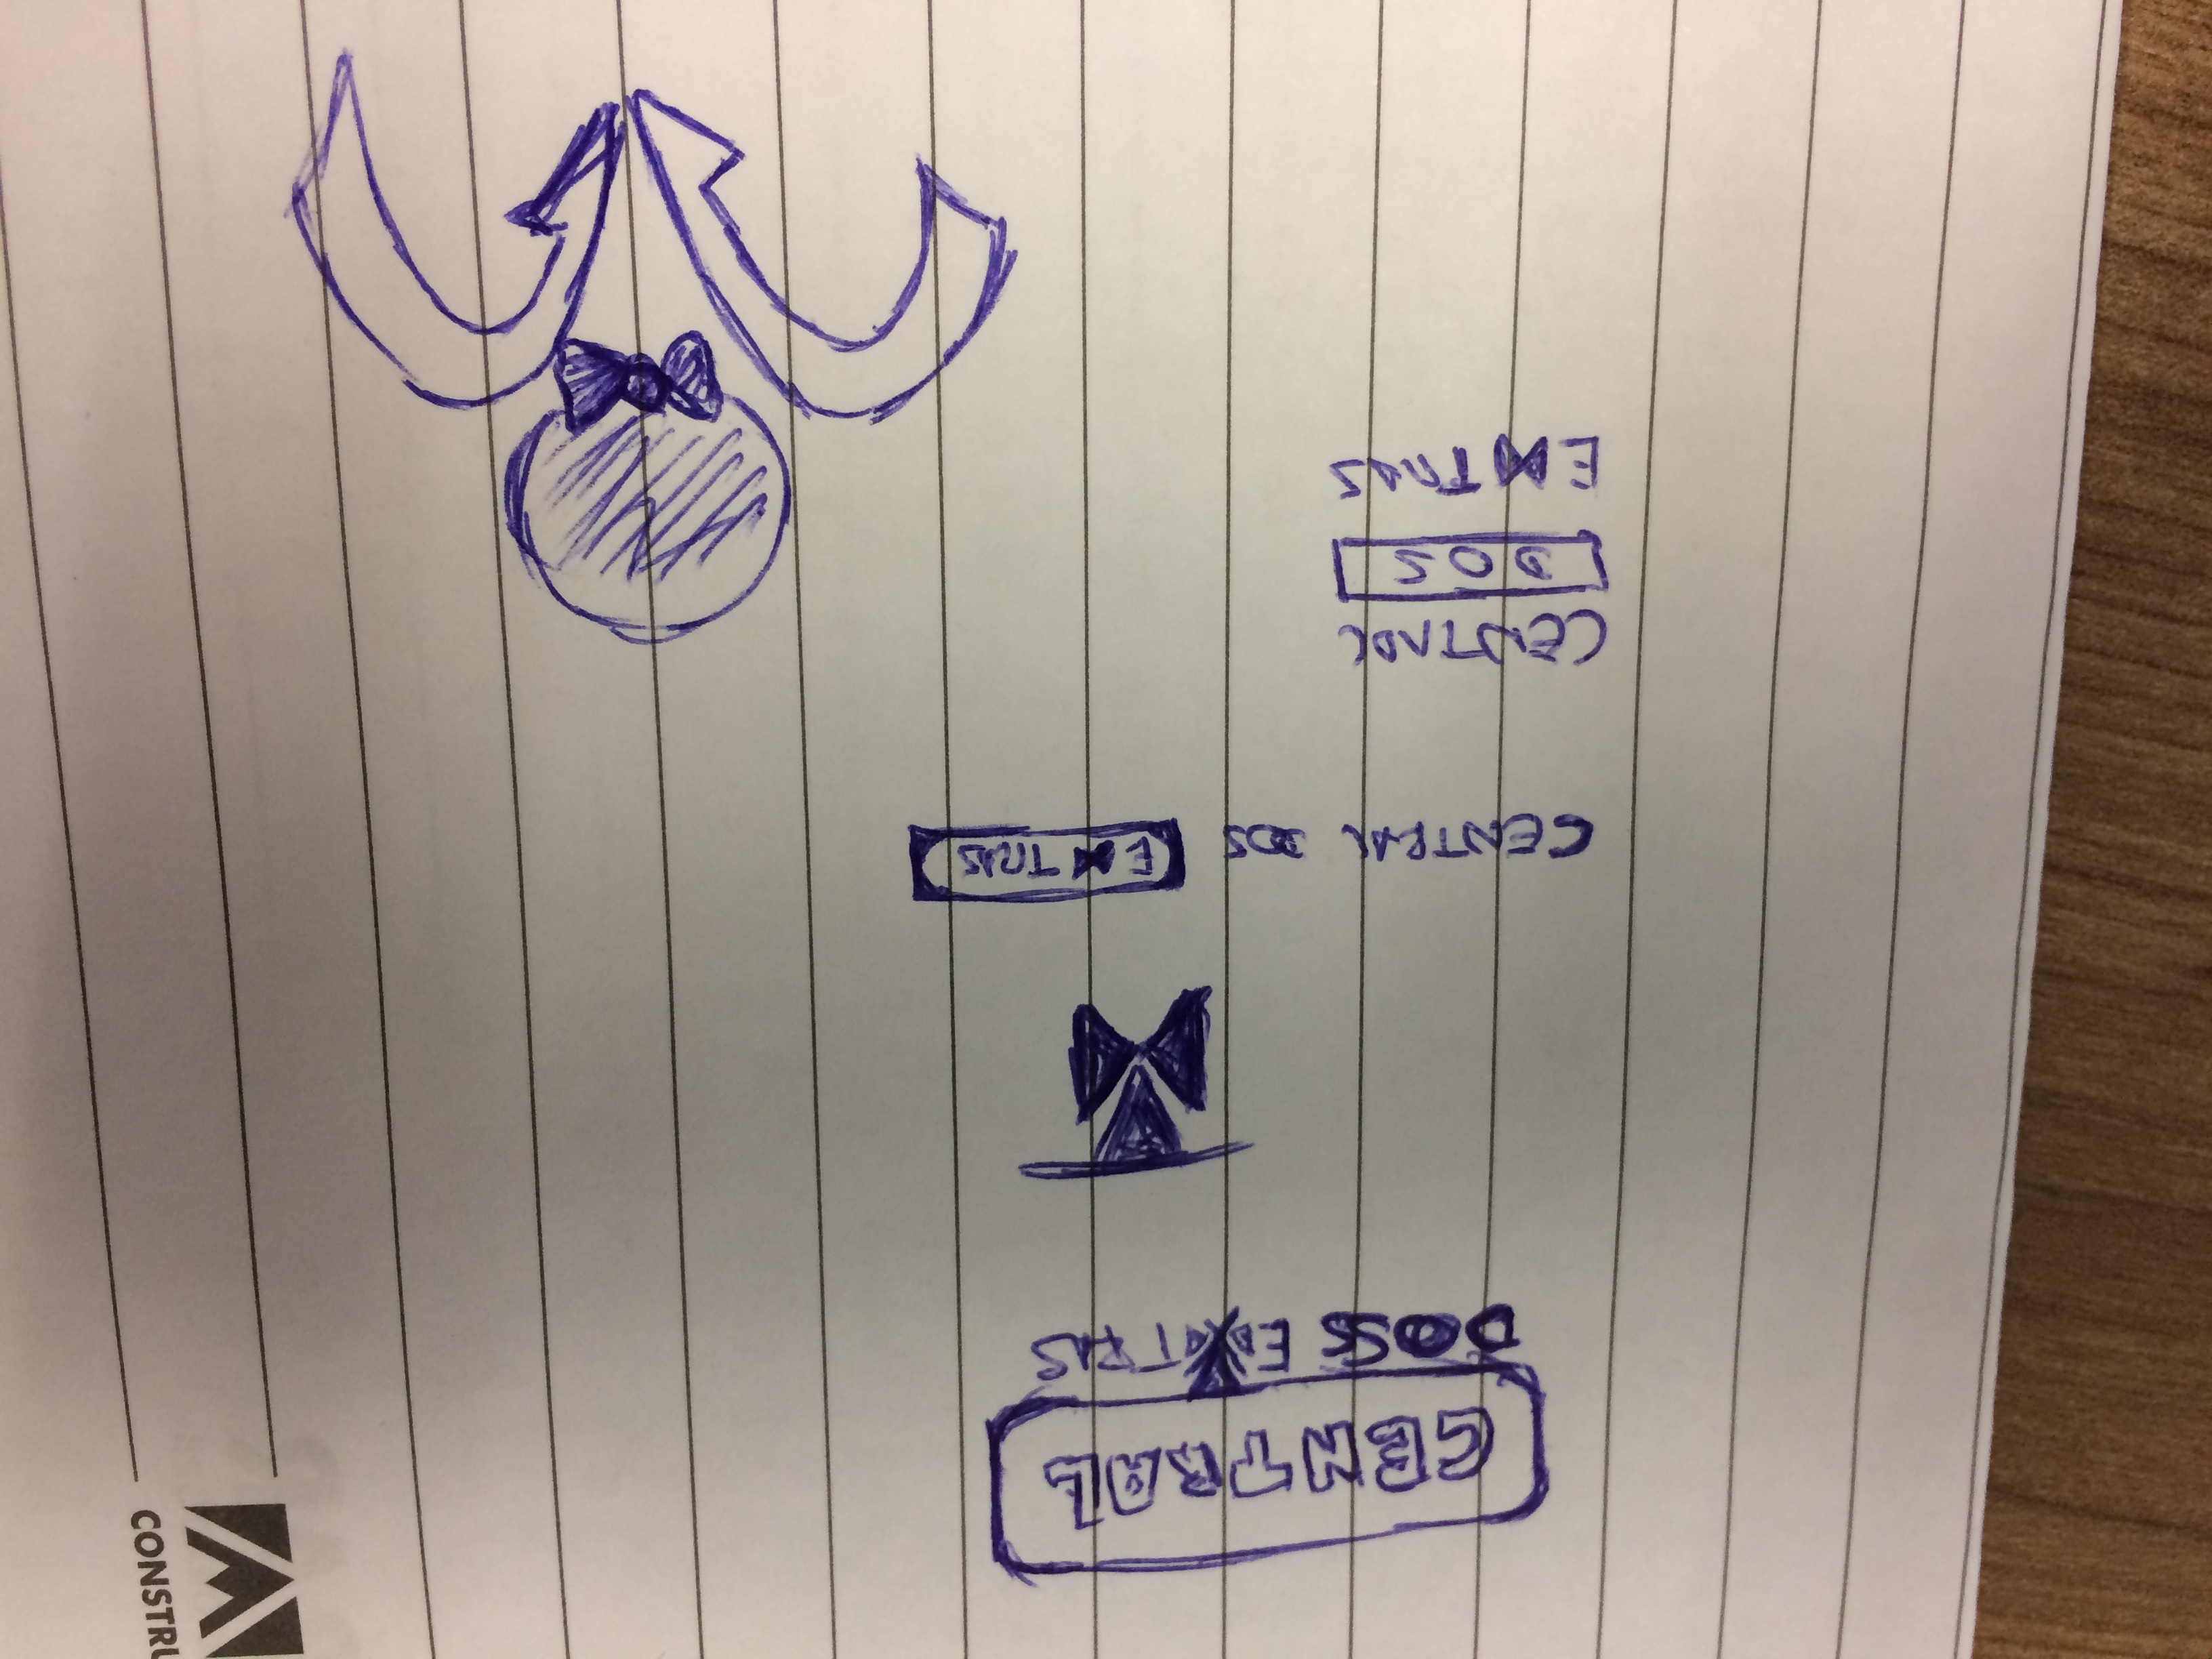 CONSTRU
CENTRAL
DOS EXTRAS
CENTRAL DOS EXTRAS
CENTRAL
DOS
EXTRAS